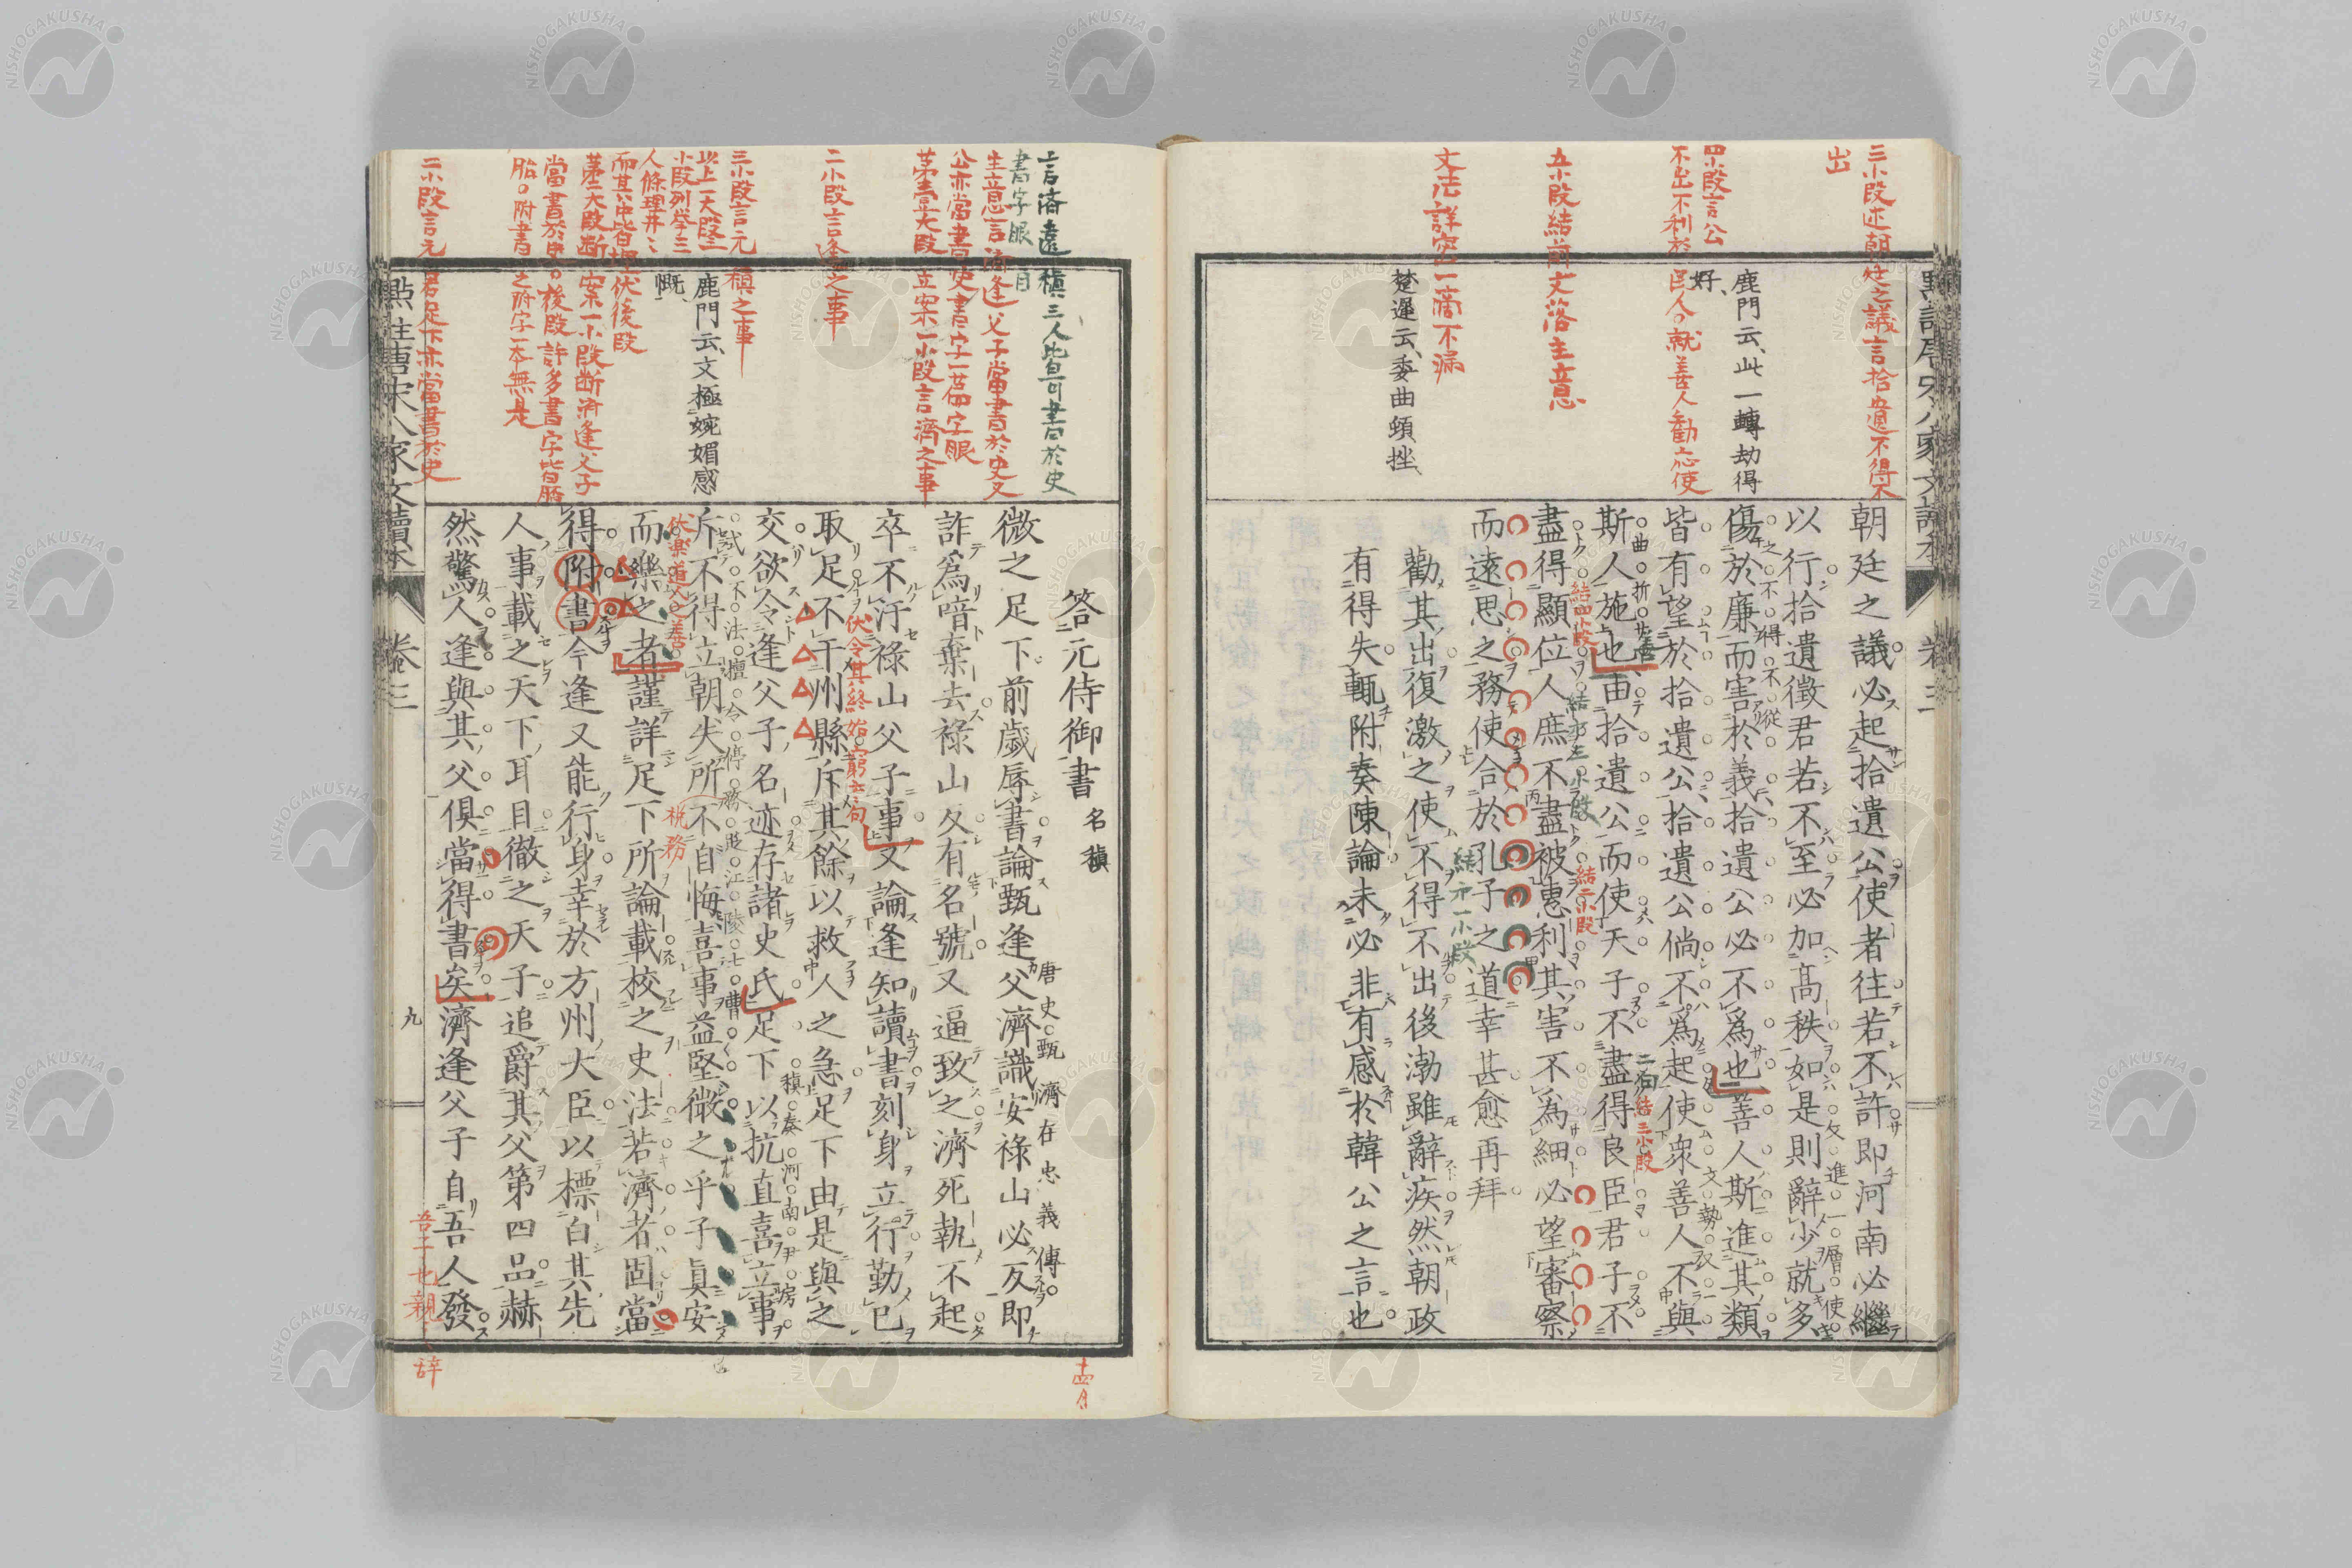 三小段述朝廷之議言拾遺不得不
出
四小段言公
不出不利於
鹿門云、此一轉劫得
好、
五小段結前文落主意
文法詳密一滴不漏
楚遲云、委曲頓挫、
朝廷之議必起拾遺公使者往若不許即河南必繼
以行拾遺徵君若不至必加高秩如是則辭少就多
傷於廉而害於義拾遺公必不爲也善人斯進其類
皆有望於拾遺公拾遺公倘不爲起使衆善人不與
斯人施也由拾遺公而使天子不盡得良臣君子不
盡得顯位人庶不盡被惠利其害不爲細必望審察
而遠思之務使合於孔子之道幸甚愈再拜
勸其出復激之使不得不出後渤雖辭疾然朝政
有得失輒附奏陳論未必非有感於韓公之言也
言濟逢稹三人皆可書於史
書字眼目
生意言濟逢父子當書於史又
公亦當書史書字一篇字眼
第壹大段立案一小段言濟之事
二小段言逢之事
三小段言元稹之事
以上一大段三
小段列挙三
人條理井〻
而其中皆埋伏後段
鹿門云、文極婉媚感
慨、
第二大段断案一小段断濟逢父子
當書於史〇後段許多書字皆胚
胎〇附書之附字一本無是
二小段言元君足下亦當書於史
答元侍御書 名稹
微之足下前歲辱書論甄逢父濟識安祿山必反即
唐史甄濟存忠義傳
詐爲喑棄去祿山反有名號又逼致之濟死執不起
卒不汙祿山父子事又論逢知讀書刻身立行勤已
取足不干州縣斥其餘以救人之急足下由是與之
伏令其終始窮士句
交欲令逢父子名迹存諸史氏足下以抗直喜立事
斥不得立朝失所不自悔喜事益堅微之乎子眞安
伏楽道人之善
而樂之者謹詳足下所論載校之史法若濟者固當
得附書今逢又能行身幸於方州大臣以標白其先
人事載之天下耳目徹之天子追爵其父第四品赫
然驚人逢與其父俱當得書矣濟逢父子自吾人發
點註唐宋八家文讀本
卷三
九